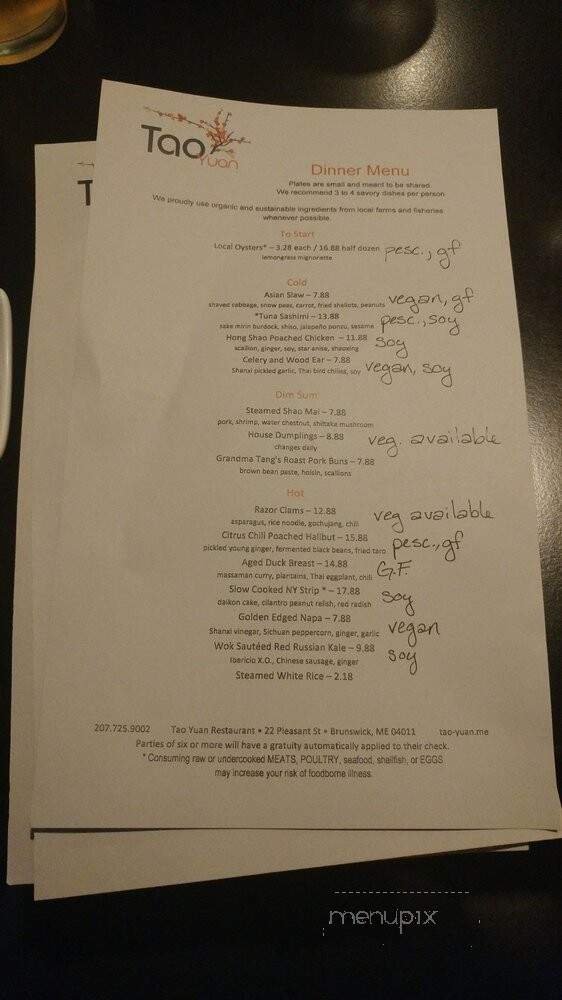 T
Tao
Yuan
Dinner Menu
Plates are small and meant to be shared.
We recommend 3 to 4 savory dishes per person
We proudly use organic and sustainable ingredients from local farms and fisheries
whenever possible.
To Start
Local Oysters* – 3.28 each / 16.88 half dozen pesc., gf
lemongrass mignonette
Cold
Asian Slaw – 7.88 vegan, gf
shaved cabbage, snow peas, carrot, fried shallots, peanuts
*Tuna Sashimi – 13.88 pesc., soy
sake mirin burdock, shiso, jalapeño ponzu, sesame
Hong Shao Poached Chicken – 11.88 soy
scallion, ginger, soy, star anise, shaoxing
Celery and Wood Ear – 7.88 vegan, soy
Shanxi pickled garlic, Thai bird chilies, soy
Dim Sum
Steamed Shao Mai – 7.88
pork, shrimp, water chestnut, shiitake mushroom
House Dumplings – 8.88 veg. available
changes daily
Grandma Tang's Roast Pork Buns – 7.88
brown bean paste, hoisin, scallions
Hot
Razor Clams – 12.88 veg available
asparagus, rice noodle, gochujang, chili
Citrus Chili Poached Halibut – 15.88 pesc., gf
pickled young ginger, fermented black beans, fried taro
Aged Duck Breast – 14.88 G.F.
massaman curry, plantains, Thai eggplant, chili
Slow Cooked NY Strip * – 17.88 soy
daikon cake, cilantro peanut relish, red radish
Golden Edged Napa – 7.88 vegan
Shanxi vinegar, Sichuan peppercorn, ginger, garlic
Wok Sautéed Red Russian Kale – 9.88 soy
Iberico X.O., Chinese sausage, ginger
Steamed White Rice – 2.18
207.725.9002 Tao Yuan Restaurant • 22 Pleasant St • Brunswick, ME 04011 tao-yuan.me
Parties of six or more will have a gratuity automatically applied to their check.
* Consuming raw or undercooked MEATS, POULTRY, seafood, shellfish, or EGGS
may increase your risk of foodborne illness.
menupix